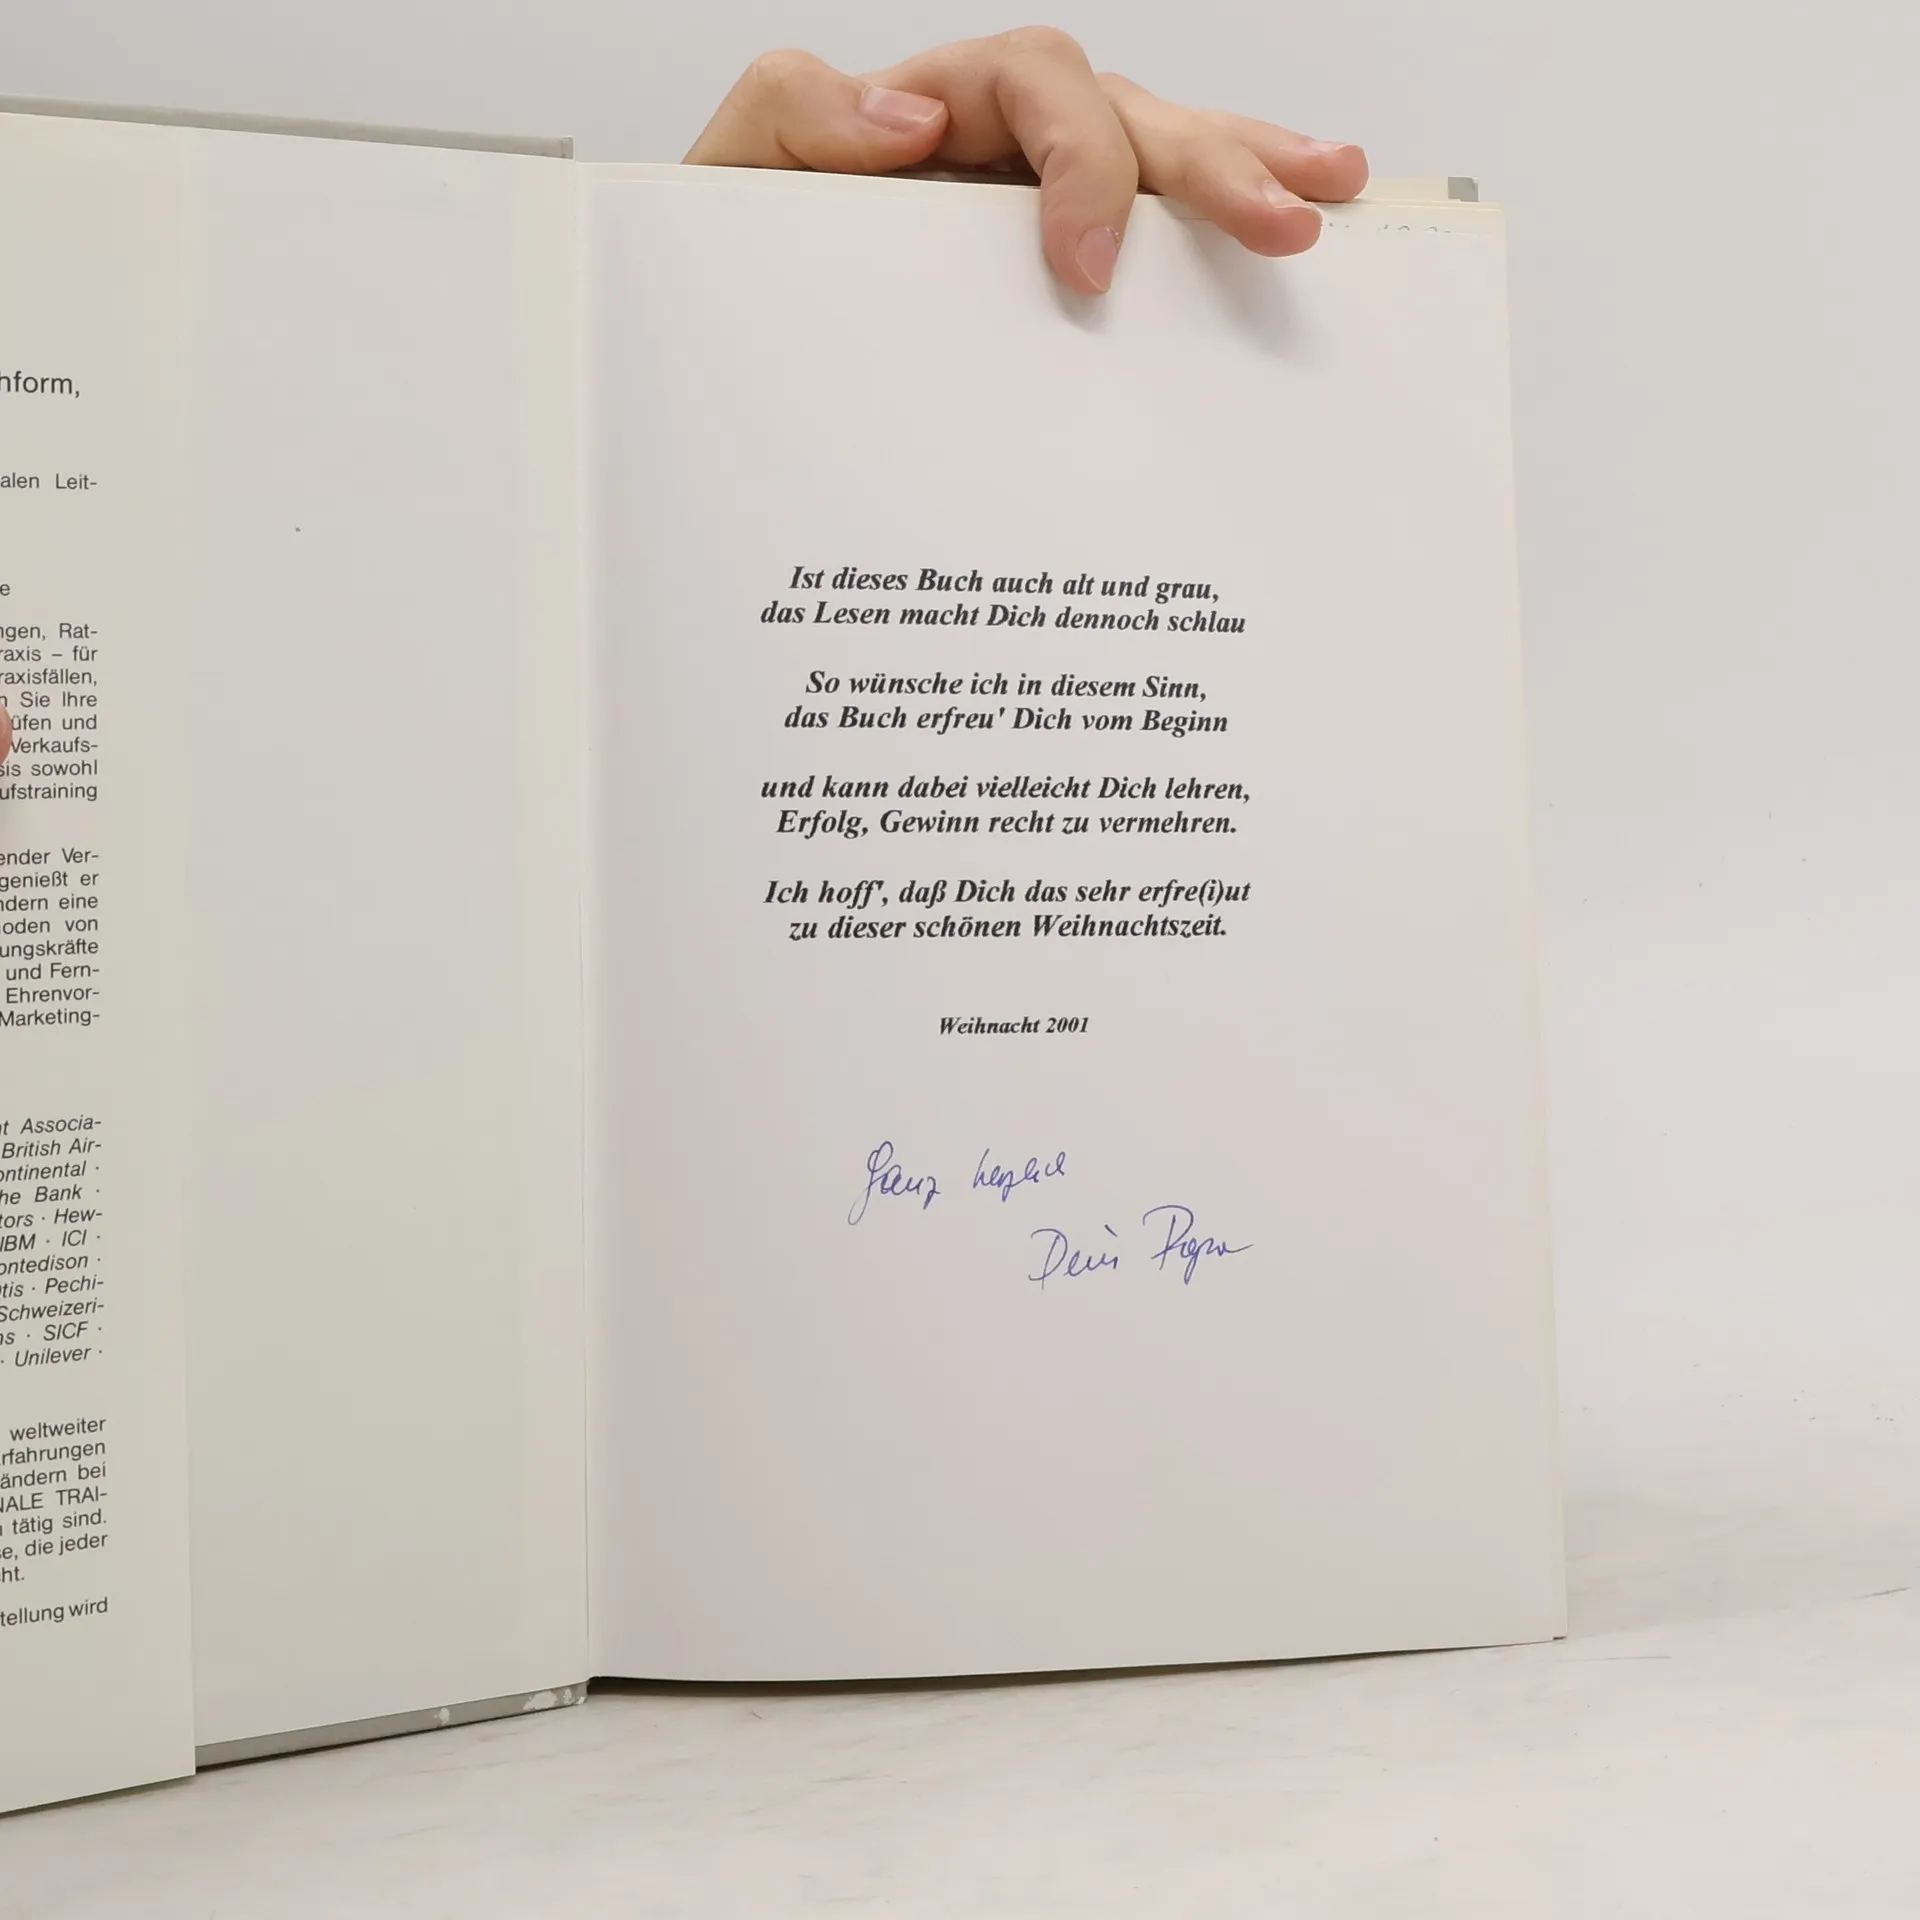 hform,
alen Leit-
e
ngen, Rat-
raxis – für
raxisfällen,
n Sie Ihre
üfen und
Verkaufs-
sis sowohl
ufstraining
ender Ver-
genießt er
ndern eine
oden von
ungskräfte
und Fern-
Ehrenvor-
Marketing-
nt Associa-
British Air-
ontinental ·
he Bank ·
tors · Hew-
IBM · ICI ·
ontedison ·
tis · Pechi-
Schweizeri-
ns · SICF ·
· Unilever ·
weltweiter
rfahrungen
ändern bei
NALE TRAI-
n tätig sind.
se, die jeder
cht.
tellung wird
Ist dieses Buch auch alt und grau,
das Lesen macht Dich dennoch schlau
So wünsche ich in diesem Sinn,
das Buch erfreu' Dich vom Beginn
und kann dabei vielleicht Dich lehren,
Erfolg, Gewinn recht zu vermehren.
Ich hoff', daß Dich das sehr erfre(i)ut
zu dieser schönen Weihnachtszeit.
Weihnacht 2001
Ganz herzlich
Dein Papa